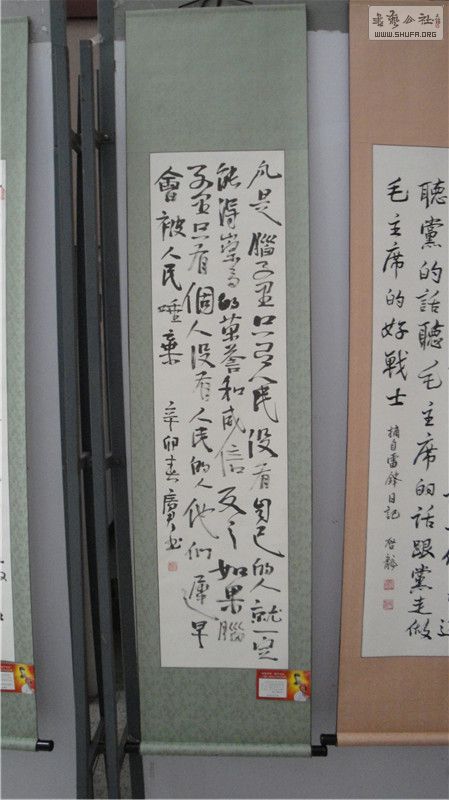 凡是腦子里只有人民没有自己的人就一定
能得崇高的荣誉和威信反之如果腦
子里只有個人没有人民的人他們遲早
會被人民唾棄
辛卯春
書
聽黨的話聽毛主席的話跟黨走做
毛主席的好戰士
摘自雷鋒日記
書藝公社
WWW.SHUFA.ORG